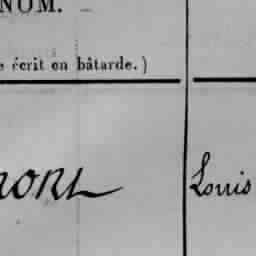 NOM.
écrit en bâtarde.)
Louis